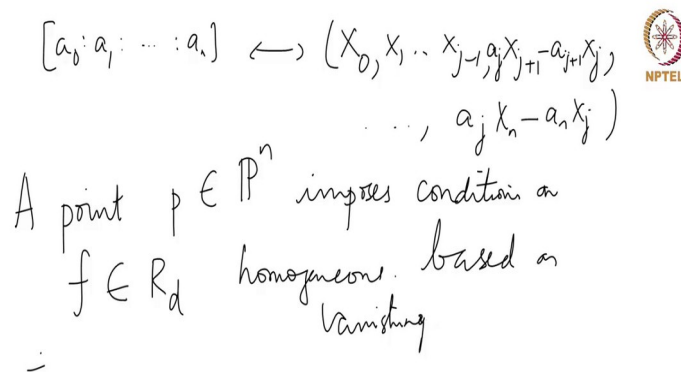 [a₀:a₁: ⋯ :aₙ] ⟷ (X₀, X₁ .. X_{j-1}, a_jX_{j+1}-a_{j+1}X_j,
..., a_jX_n - a_nX_j)
A point p ∈ ℙⁿ imposes condition on
f ∈ R_d homogeneous. based on
vanishing
NPTEL